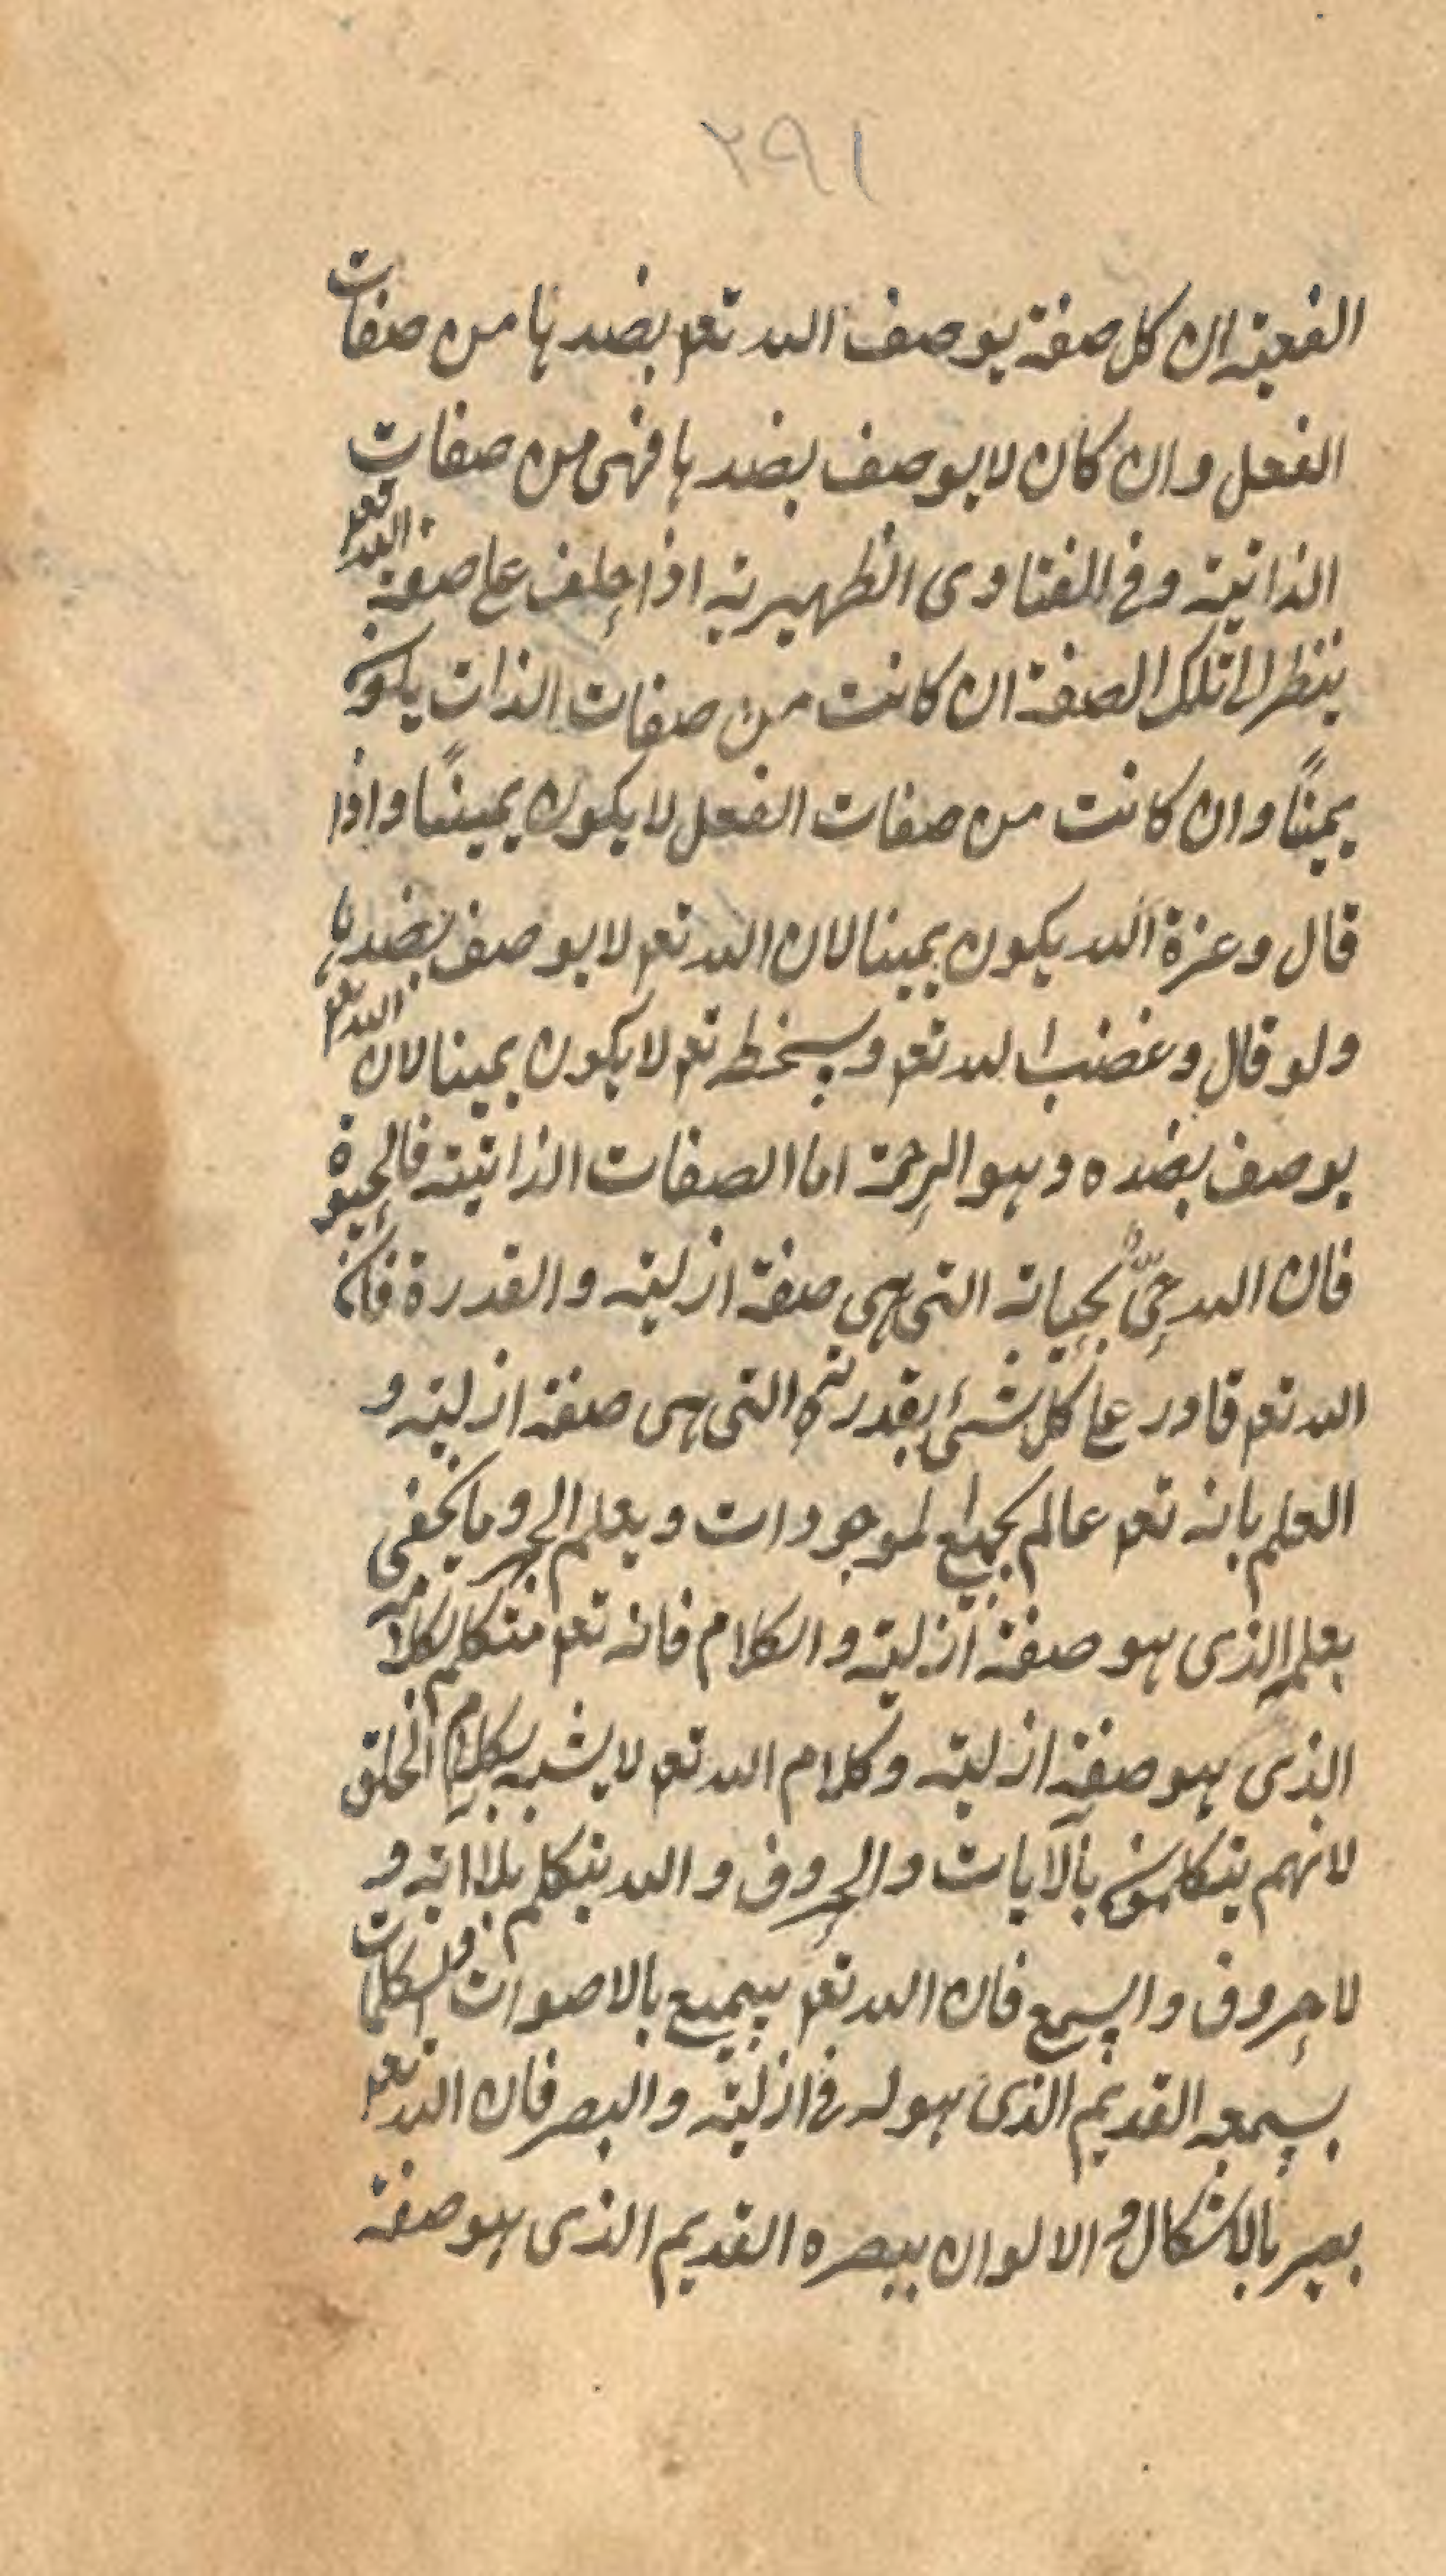 ٢٩١
الفعلية ان كل صفة يوصف الله تعم بضدها من صفات
الفعل وان كان لا يوصف بضدها فهى من صفات
الذاتية وفى الفتاوى الظهيرية اذا حلف على صفة الله تعم
ينظر الى تلك الصفة ان كانت من صفات الذات يكون
يمينًا وان كانت من صفات الفعل لا يكون يمينًا واذا
قال وعزة الله يكون يمينا لان الله تعم لا يوصف بضدها
ولو قال وغضب الله تعم وسخطه تعم لا يكون يمينا لان الله تعم
يوصف بضده وهو الرحمة اما الصفات الذاتية فالحيوة
فان الله حىّ بحياته التى هى صفة ازلية والقدرة فان
الله تعم قادر على كل شئ بقدرته التى هى صفة ازلية و
العلم بانه تعم عالم بجميع الموجودات ويعلم الجهر وما يخفى
بعلمه الذى هو صفة ازلية والكلام فانه تعم متكلم بكلامه
الذى هو صفة ازلية وكلام الله تعم لا يشبه بكلام الخلق
لانهم يتكلمون بالآيات والحروف والله يتكلم بلا اته و
لا حروف والسمع فان الله تعم سميع بالاصوات والكلمات
بسمعه القديم الذى هو له فى ازلية والبصر فان الله تعم
بصير بالاشكال والالوان ببصره القديم الذى هو صفة